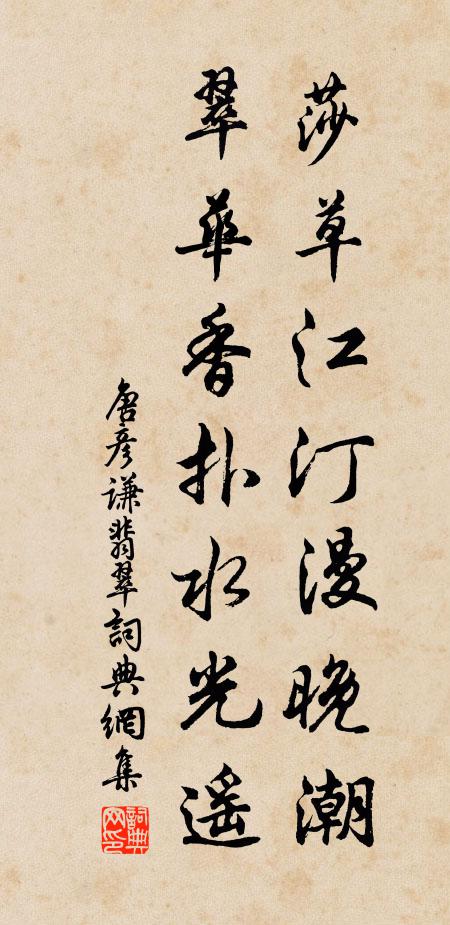 莎草江汀漫晚潮
翠華香扑水光遥
唐彦谦翡翠詞典網集
詞典網印